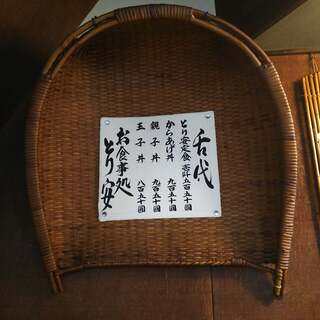 舌代
とり安定食 壱阡五百五十圓
からあげ丼 九百五十圓
親子丼 九百五十圓
玉子丼 八百五十圓
お食事処
とり安